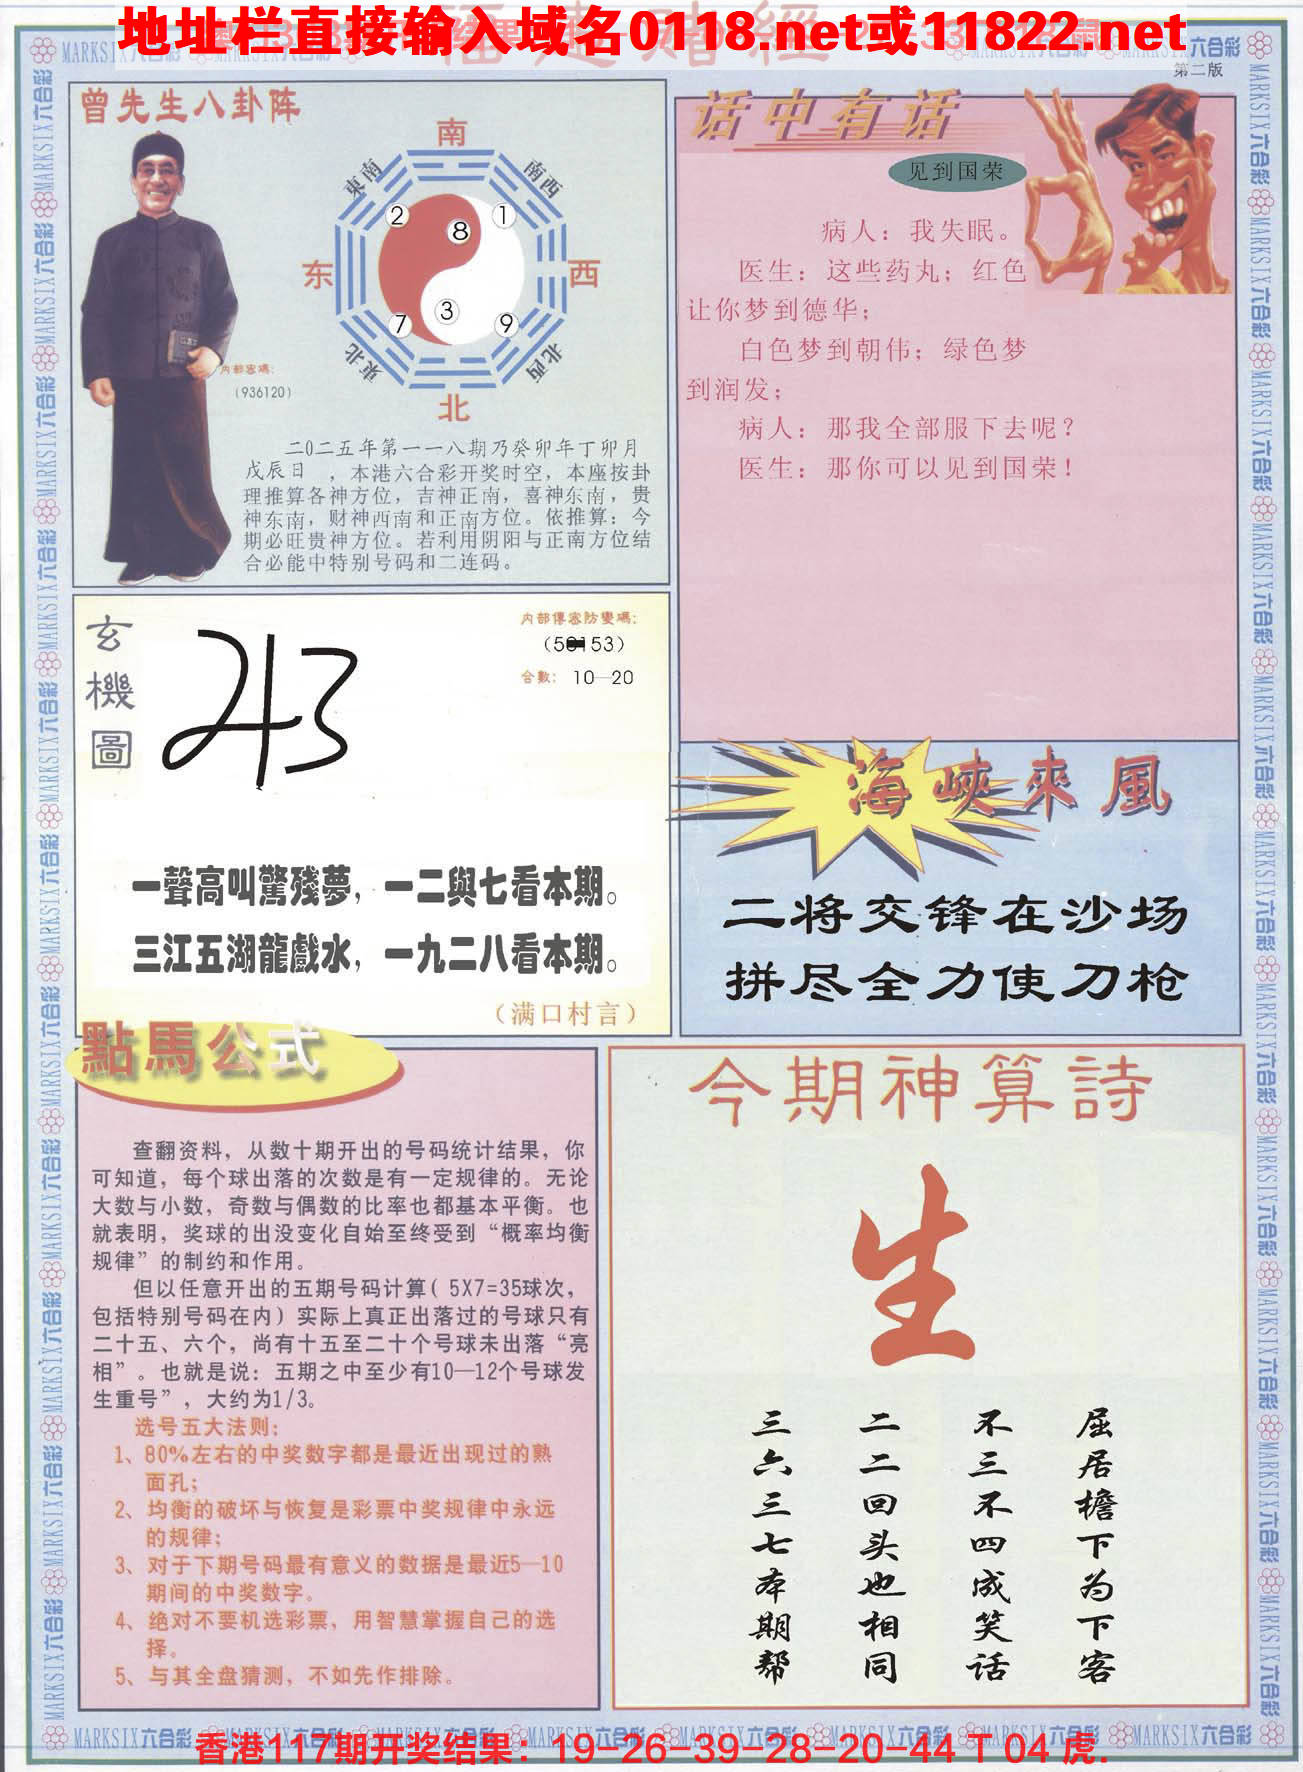 地址栏直接输入域名0118.net或11822.net
第二版
曾先生八卦阵
南
東南
南西
2
8
1
东
西
7
3
9
東北
北西
北
内部密碼:
(936120)
二〇二五年第一一八期乃癸卯年丁卯月
戊辰日 ，本港六合彩开奖时空，本座按卦
理推算各神方位，吉神正南，喜神东南，贵
神东南，财神西南和正南方位。依推算：今
期必旺贵神方位。若利用阴阳与正南方位结
合必能中特别号码和二连码。
话中有话
见到国荣
病人：我失眠。
医生：这些药丸；红色
让你梦到德华；
白色梦到朝伟；绿色梦
到润发；
病人：那我全部服下去呢？
医生：那你可以见到国荣！
玄機圖
内部傳密防變碼:
合數: 10—20
一聲高叫驚殘夢，一二與七看本期。
三江五湖龍戲水，一九二八看本期。
（满口村言）
海峽來風
二将交锋在沙场
拼尽全力使刀枪
點馬公式
查翻资料，从数十期开出的号码统计结果，你
可知道，每个球出落的次数是有一定规律的。无论
大数与小数，奇数与偶数的比率也都基本平衡。也
就表明，奖球的出没变化自始至终受到“概率均衡
规律”的制约和作用。
但以任意开出的五期号码计算( 5X7=35球次，
包括特别号码在内）实际上真正出落过的号球只有
二十五、六个，尚有十五至二十个号球未出落“亮
相”。也就是说：五期之中至少有10—12个号球发
生重号”，大约为1/3。
选号五大法则：
1、80%左右的中奖数字都是最近出现过的熟
面孔；
2、均衡的破坏与恢复是彩票中奖规律中永远
的规律；
3、对于下期号码最有意义的数据是最近5—10
期间的中奖数字。
4、绝对不要机选彩票，用智慧掌握自己的选
择。
5、与其全盘猜测，不如先作排除。
今期神算詩
生
屈居檐下为下客
不三不四成笑话
二二回头也相同
三六三七本期帮
MARKSIX六合彩
香港117期开奖结果：19-26-39-28-20-44 T 04 虎.